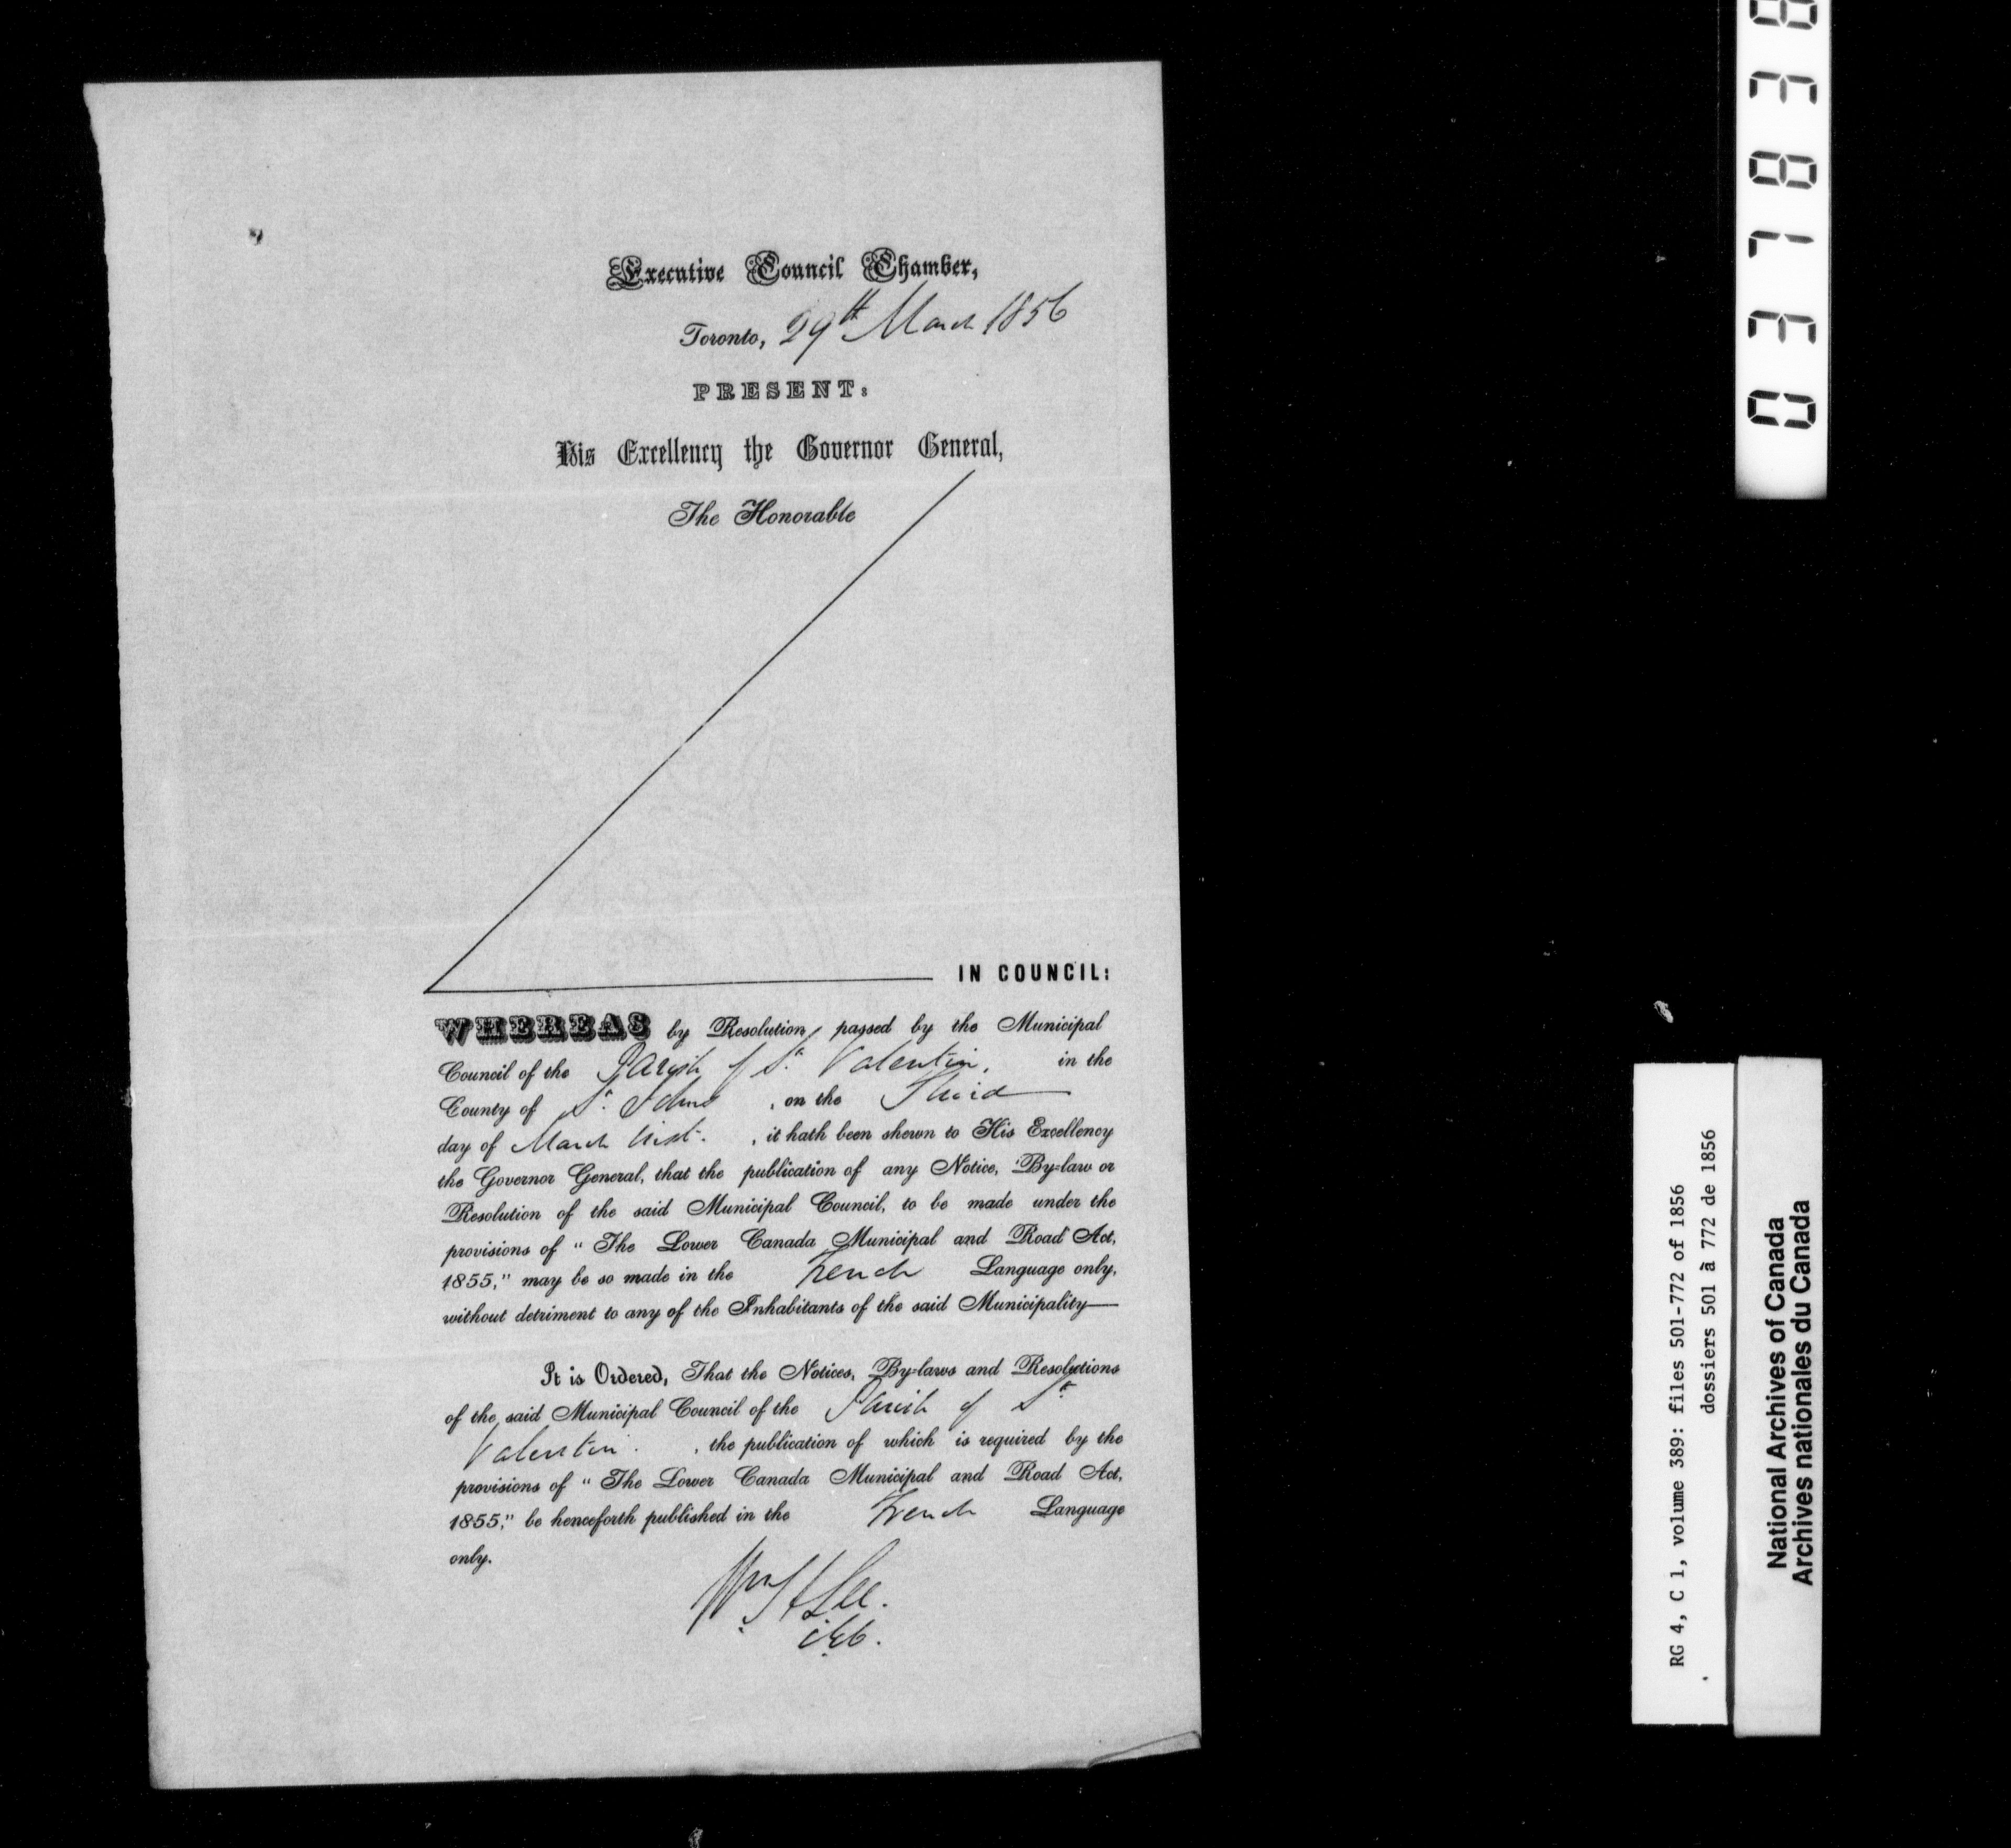 Executive Council Chamber,
Toronto, 29th March 1856
PRESENT:
His Excellency the Governor General,
The Honorable
IN COUNCIL:
WHEREAS by Resolution, passed by the Municipal
Council of the Parish of St. Valentin, in the
County of St. Johns , on the Third
day of March inst. , it hath been shewn to His Excellency
the Governor General, that the publication of any Notice, By-law or
Resolution of the said Municipal Council, to be made under the
provisions of "The Lower Canada Municipal and Road Act,
1855," may be so made in the French Language only,
without detriment to any of the Inhabitants of the said Municipality—
It is Ordered, That the Notices, By-laws and Resolutions
of the said Municipal Council of the Parish of St
Valentin. , the publication of which is required by the
provisions of "The Lower Canada Municipal and Road Act,
1855," be henceforth published in the French Language
only.
Wm H Lee.
RG 4, C 1, volume 389: files 501-772 of 1856
dossiers 501 à 772 de 1856
National Archives of Canada
Archives nationales du Canada
037838